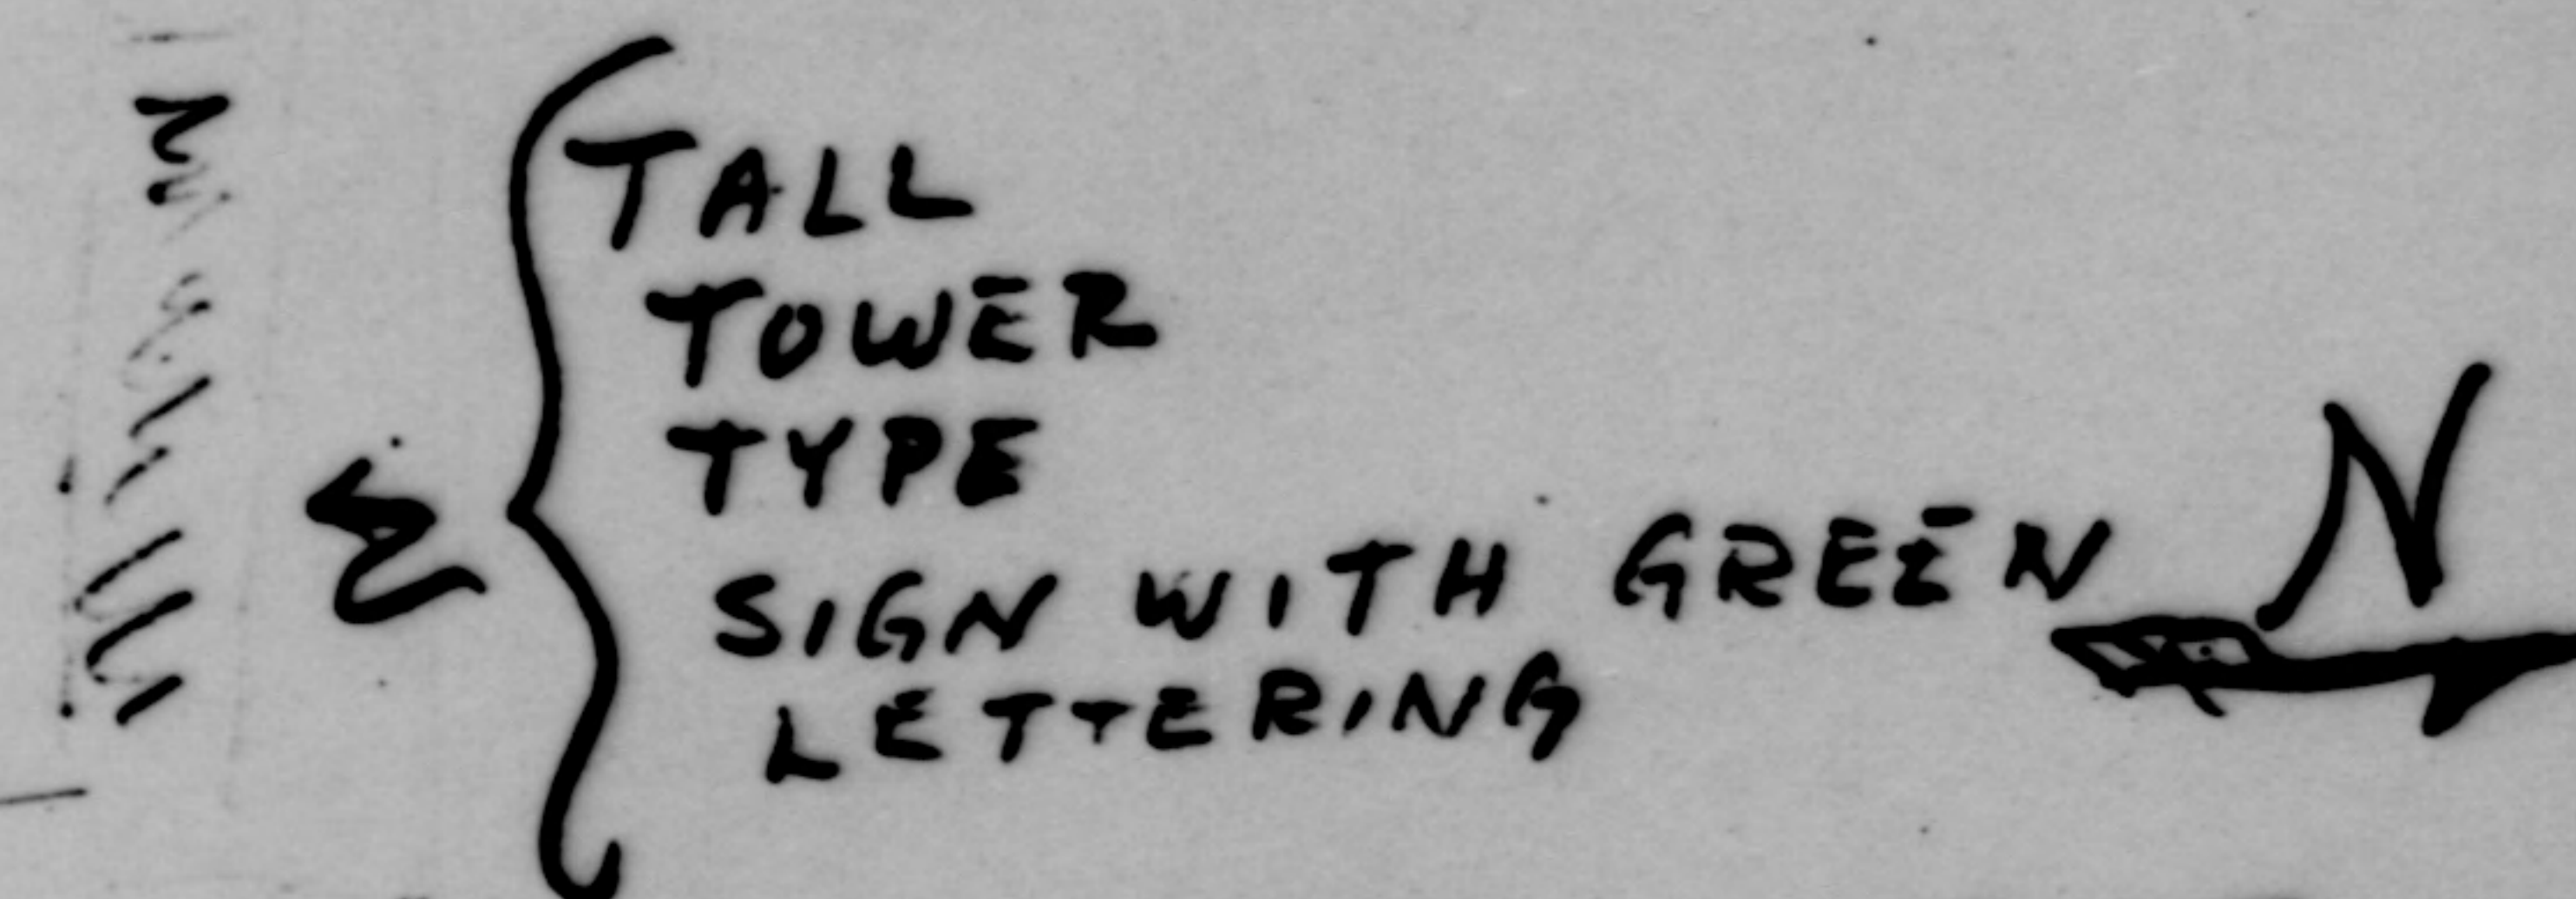 TALL
TOWER
TYPE
SIGN WITH GREEN
LETTERING
N